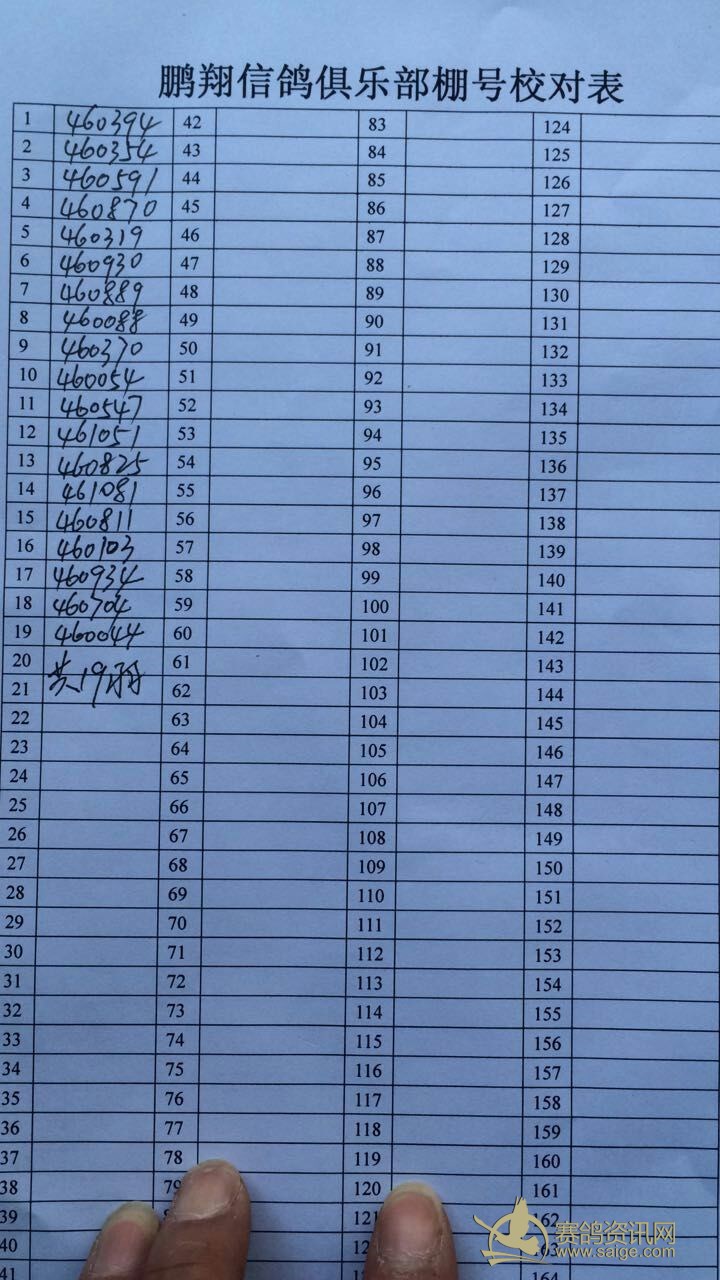 鹏翔信鸽俱乐部棚号校对表
1 460394 42 83 124
2 460354 43 84 125
3 460591 44 85 126
4 460870 45 86 127
5 460319 46 87 128
6 460930 47 88 129
7 460889 48 89 130
8 460088 49 90 131
9 460370 50 91 132
10 460054 51 92 133
11 460547 52 93 134
12 461051 53 94 135
13 460825 54 95 136
14 461081 55 96 137
15 460811 56 97 138
16 460103 57 98 139
17 460934 58 99 140
18 460704 59 100 141
19 460044 60 101 142
20 共19羽 61 102 143
21 62 103 144
22 63 104 145
23 64 105 146
24 65 106 147
25 66 107 148
26 67 108 149
27 68 109 150
28 69 110 151
29 70 111 152
30 71 112 153
31 72 113 154
32 73 114 155
33 74 115 156
34 75 116 157
35 76 117 158
36 77 118 159
37 78 119 160
38 79 120 161
39 121 162
40 163
41 164
赛鸽资讯网
www.saige.com